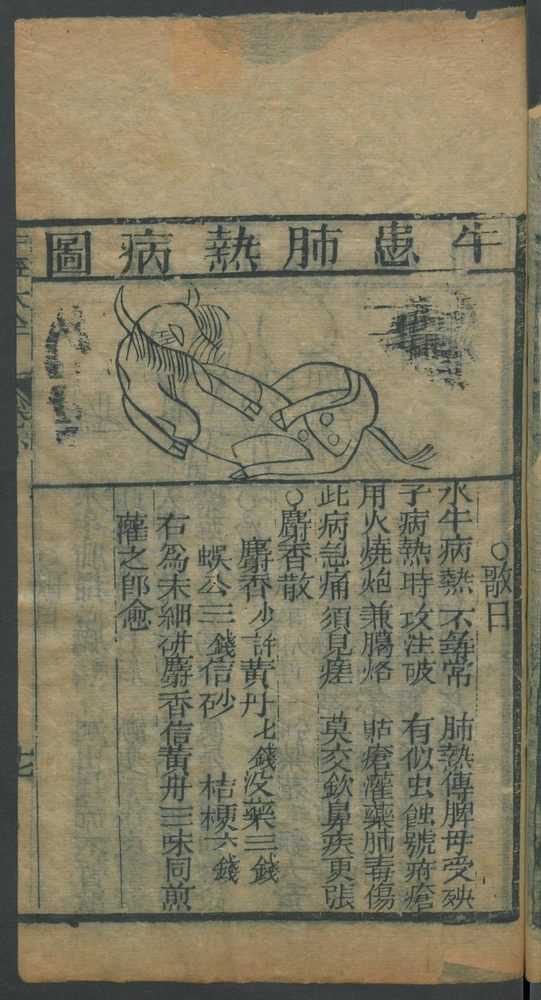 牛患肺熱病圖
○歌曰
水牛病熱不尋常　肺熱傳脾母受殃
子病熱時攻注破　有似虫蝕號疳瘡
用火燒炮兼膓烙　貼瘡灌藥肺毒傷
此病急痛須見瘥　莫交欽鼻疾更張
○麝香散
麝香少許黃丹七錢沒藥三錢
蜈公三錢信砂　桔梗六錢
右為末細研麝香信黃丹三味同煎
灌之即愈